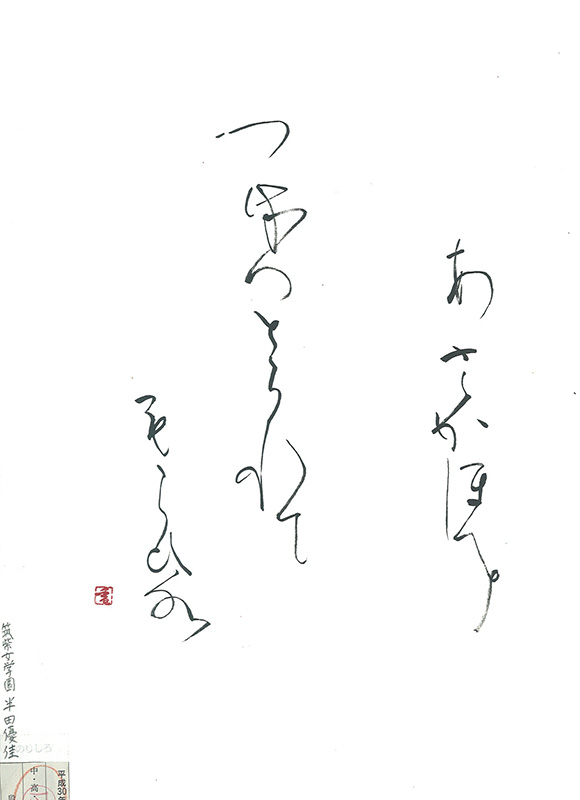 あさかほや
つるへとられて
もらひ水
筑紫女学園 半田優佳
のりしろ
平成30年
中・高・